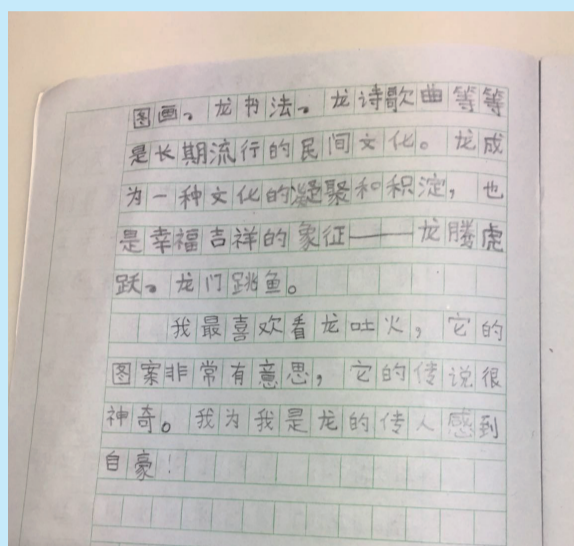 图画、龙书法、龙诗歌曲等等
是长期流行的民间文化。龙成
为一种文化的凝聚和积淀，也
是幸福吉祥的象征——龙腾虎
跃、龙门跳鱼。
我最喜欢看龙吐火，它的
图案非常有意思，它的传说很
神奇。我为我是龙的传人感到
自豪！